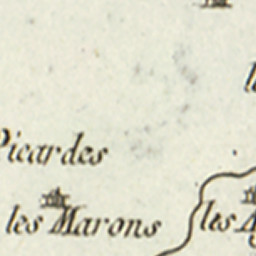 Picardes
les Marons
les